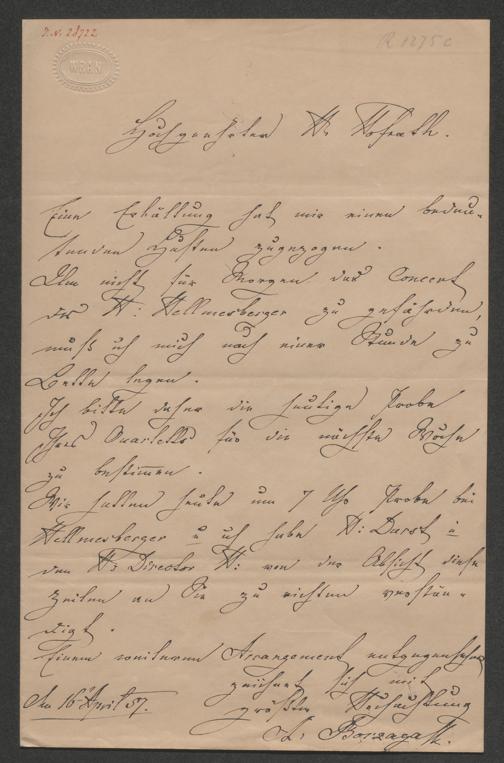 I.N. 28722
R 1275 c
WRAN
Hochgeehrter Hr Hofrath.
Eine Erkältung hat mir einen bedeu-
tenden Husten zugezogen.
Um nicht für Morgen das Concert
des H: Hellmesberger zu gefährden,
muß ich mich nach einer Stunde zu
Bette legen.
Ich bitte daher die heutige Probe
Ihres Quartetts für die nächste Woche
zu bestimmen.
Wir hatten heute um 7 Uhr Probe bei
Hellmesberger u ich habe H: Durst u
den Hr Director H: von der Absicht diese
Zeilen an Sie zu richten verstän-
digt.
Einem weiteren Arrangement entgegensehend
zeichnet sich mit
Am 16t April 57. größter Hochachtung
Borzaga